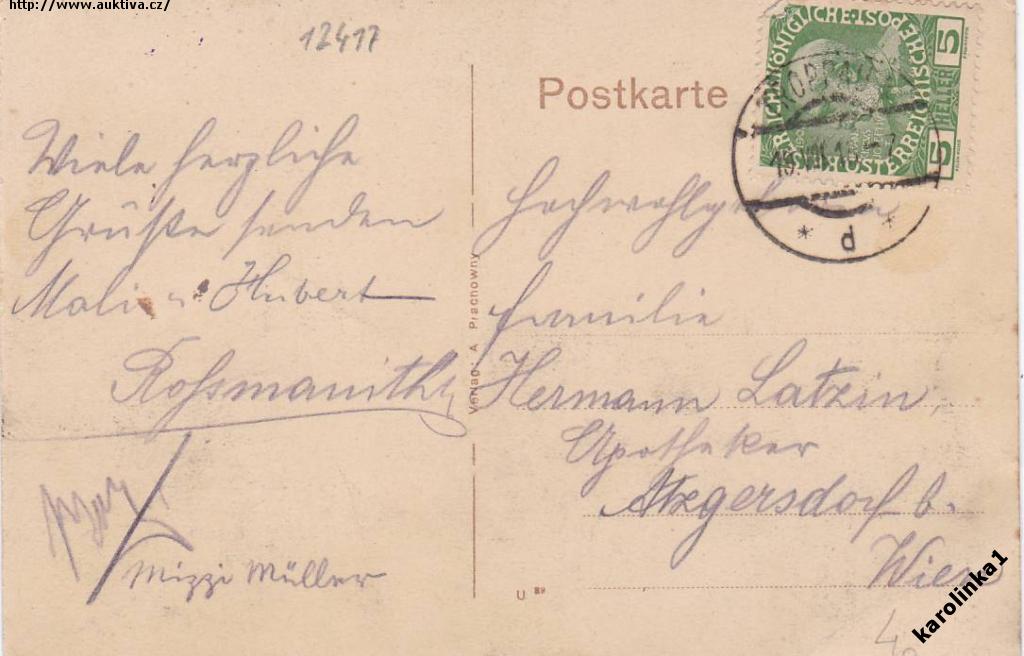 http://www.auktiva.cz/
12417
Postkarte
KAISERLICHKÖNIGLICHE·POST
ÖSTERREICHISCHE
5 HELLER 5
d
Viele herzliche
Grüße senden
Mali u. Hubert
Rossmanith
Mizzi Müller
Verlag: A. Prachowny
Hochwohlgeboren
Familie
Hermann Latzin,
Apotheker
Atzgersdorf b.
Wien
U 89
karolinka1